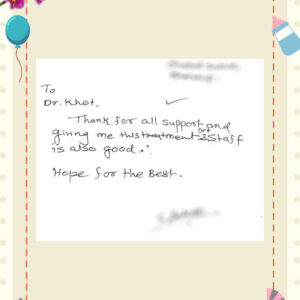 To
Dr. Khot,
Thank for all support and
giving me this treatment & Staff
is also good.
Hope for the Best.